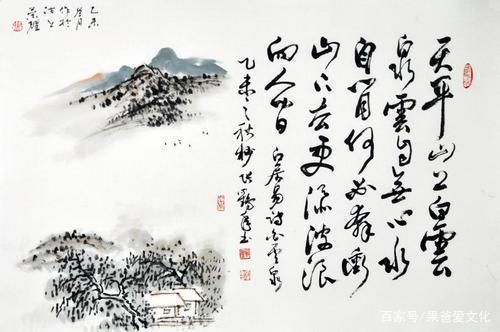 天平山上白雲
泉雲自無心水
自間何必奔衝
山下去更添波浪
向人間 白居易詩白雲泉
乙未之秋杪 鶴年书
乙未
月
作於
百家号/果爸爱文化